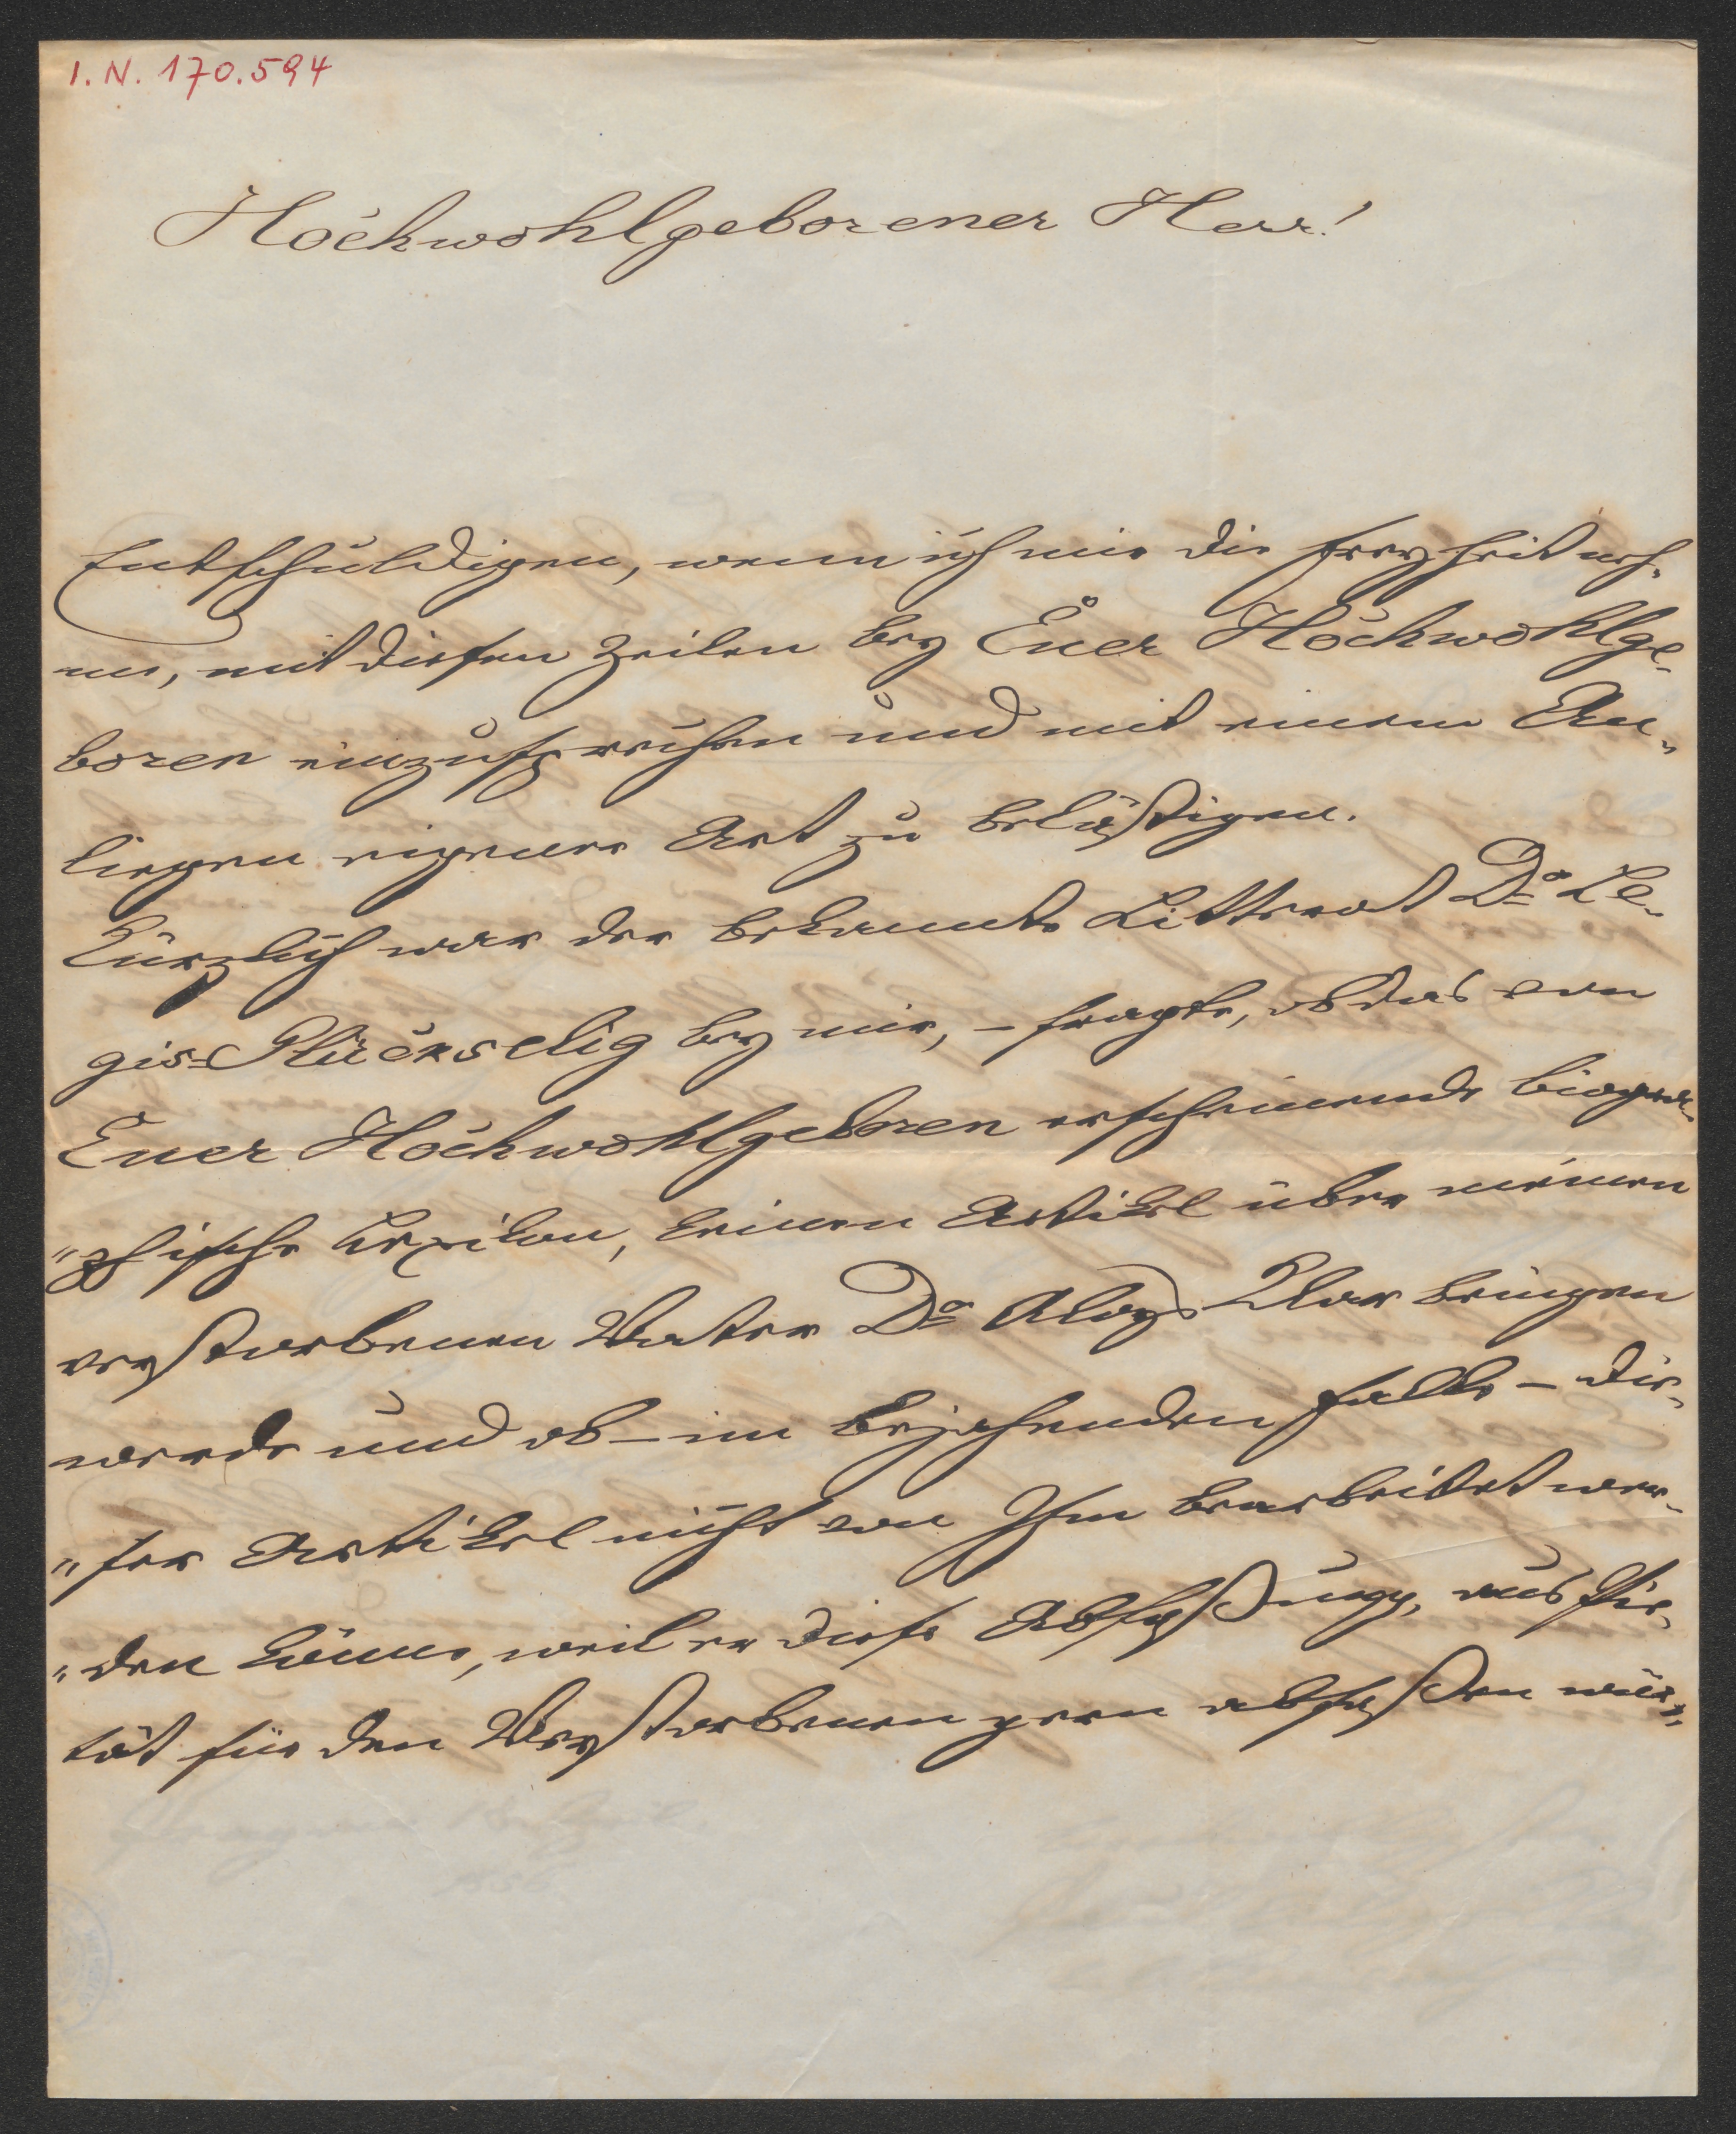 I. N. 170.594
Hochwohlgeborener Herr!
Entschuldigen, wenn ich mir die Freyheit neh-
me, mit diesen Zeilen bey Euer Hochwohlge-
boren einzusprechen und mit einem An-
liegen eigener Art zu belästigen.
Kürzlich war der bekannte Litterat Dr Le-
gis-Glückselig bey mir, – fragte, ob das von
Euer Hochwohlgeboren erscheinende biogra-
"phische Lexikon, keinen Artikel über meinen
verstorbenen Vater Dr Aloys Klar bringen
werde und ob – im bejahenden Falle – die-
"ser Artikel nicht von Ihm bearbeitet wer-
"den könne, weil er diese Abfaßung, aus Pie-
tät für den Verstorbenen gern abfaßen wür-